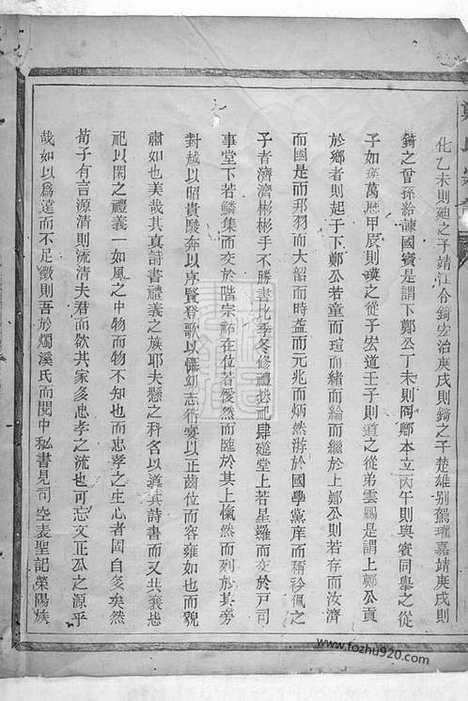 化乙未則廸之子靖江令錡宏治庚戌則錡之子楚雄别駕瓏嘉靖庚戌則
錡之曾孫給諫國賓是謂下鄭公丁未則同鄉本立丙午則與賓同舉之從
子如瑛萬厯甲辰則瑛之從子宏道壬子則道之從弟雲錫是謂上鄭公貢
於鄉者則起子下鄭公若童而瑄而緒而綸而繼於上鄭公則若存而汝濟
而國是而邦羽而大韶而時盍而元兆而炳然游於國學黨庠而稱衿佩之
子者濟濟彬彬手不勝書比季冬修禮秩祀肆筵堂上若星羅而交於戸司
事堂下若鱗集而交於階宗祏在位若僾然而匯於其上愾然而臨於其旁
對越以昭貴駿奔以序賢登歌以備幼志行宴以正齒位而容雍如也而貌
肅如也美哉其真詩書禮義之族耶夫懸之科名以道其詩書而又共其忠
祀以閑之禮義一如風之中物而物不知也而忠孝之生心者固自多矣然
荀子有言源清則流清夫君而欲其家多忠孝之流也可忘文正公之源乎
哉如以爲遠而不足徵則吾於燭溪氏而閱中秘書見司空表聖記榮陽族
www.fozhu920.com